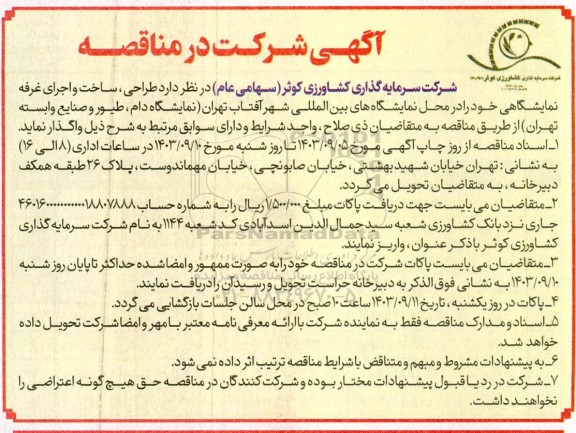 آگهی شرکت در مناقصه
شرکت سرمایه گذاری کشاورزی کوثر
شرکت سرمایه گذاری کشاورزی کوثر (سهامی عام) در نظر دارد طراحی، ساخت و اجرای غرفه
نمایشگاهی خود را در محل نمایشگاه های بین المللی شهر آفتاب تهران (نمایشگاه دام، طیور و صنایع وابسته
تهران) از طریق مناقصه به متقاضیان ذی صلاح و واجد شرایط و دارای سوابق مرتبط به شرح ذیل واگذار نماید.
۱ـ اسناد مناقصه از روز چاپ آگهی مورخ ۱۴۰۳/۰۹/۰۵ تا روز شنبه مورخ ۱۴۰۳/۰۹/۱۰ در ساعات اداری (۸ الی ۱۶)
به نشانی: تهران خیابان شهیدبهشتی، خیابان صابونچی، خیابان مهماندوست، پلاک ۲۶ طبقه همکف
دبیرخانه، به متقاضیان تحویل می گردد.
۲ـ متقاضیان می بایست جهت دریافت پاکات مبلغ ۱/۵۰۰/۰۰۰ ریال را به شماره حساب
جاری نزد بانک کشاورزی شعبه سید جمال الدین اسدآبادی کد شعبه ۱۱۴۴ به نام شرکت سرمایه گذاری
کشاورزی کوثر با ذکر عنوان، واریز نمایند.
۳ـ متقاضیان می بایست پاکات شرکت در مناقصه خود را به صورت ممهور و امضا شده حداکثر تا پایان روز شنبه
۱۴۰۳/۰۹/۱۰ به نشانی فوق الذکر به دبیرخانه حراست تحویل و رسید آن را دریافت نمایند.
۴ـ پاکات در روز یکشنبه، تاریخ ۱۴۰۳/۰۹/۱۱ ساعت ۱۰ صبح در محل سالن جلسات بازگشایی می گردد.
۵ـ اسناد و مدارک مناقصه فقط به نماینده شرکت با ارائه معرفی نامه معتبر با مهر و امضا شرکت تحویل داده
خواهد شد.
۶ـ به پیشنهادات مشروط و مبهم و متناقض با شرایط مناقصه ترتیب اثر داده نمی شود.
۷ـ شرکت در رد یا قبول پیشنهادات مختار بوده و شرکت کنندگان در مناقصه حق هیچ گونه اعتراضی را
نخواهند داشت.
ParsNamadData